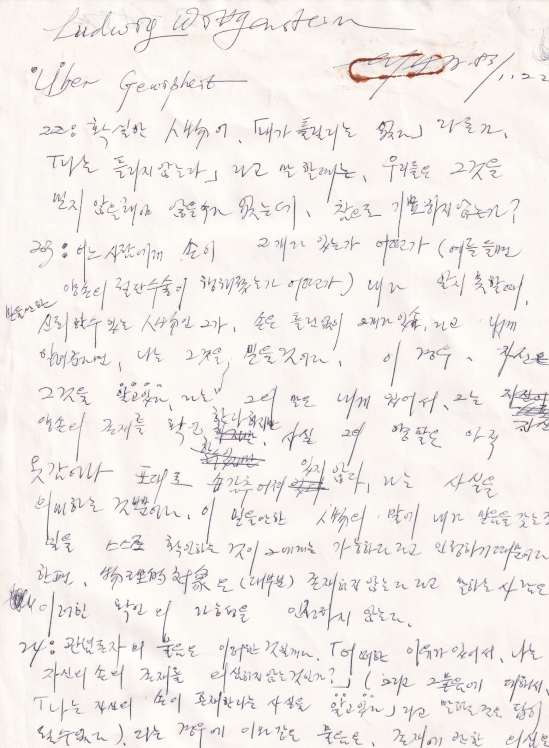 Ludwig Wittgenstein
Über Gewißheit
22: 확실한 人物이, 「내가 틀릴리는 없다」 라든가,
「나는 틀리지 않는다」 라고 말할때는, 우리들은 그것을
믿지 않을래야 않을수가 없는데, 참으로 기묘하지 않는가?
23: 어느 사람에게 손이 2개가 있는가 어떤가 (예를들면
양손의 절단수술이 행해졌는가 어떤가) 내가 알지 못할때,
믿을만한
신뢰할수 있는 人物인 그가, 손은 틀림없이 2개가 있습 라고 내게
, 나는 그것을 믿을것이다. 이 경우, 자신은
그것을 알고있다, 라는 그의 말은 내게 있어서, 그는
양손의 존재를 확인 사실 그의 양팔은 아직
붕대로 감추어져 있지 않다, 라는 사실을
의미하는 것뿐이다. 이 믿을만한 人物의 말에 내가 믿음을 갖는것
확인하는 것이 그에게는 가능하다 라고 인정하기 때문이다
한편, 物理的対象은 (대부분) 존재하지 않는다 라고 말하는 사람은
이러한 확인의 가능성을 인정하지 않는다.
24: 관념론자의 물음은 이러한 것일게다. 「어떠한 이유가 있어서, 나는
자신의 손의 존재를 의심하지 않는 것인가?」 (그리고 그물음에 대해서,
「나는 자신의 손이 존재한다는 사실을 알고있다」 라고 말하는것은 답이
될수없다). 라는 경우에 이와같은 물음은, 존재에 관한 의심은